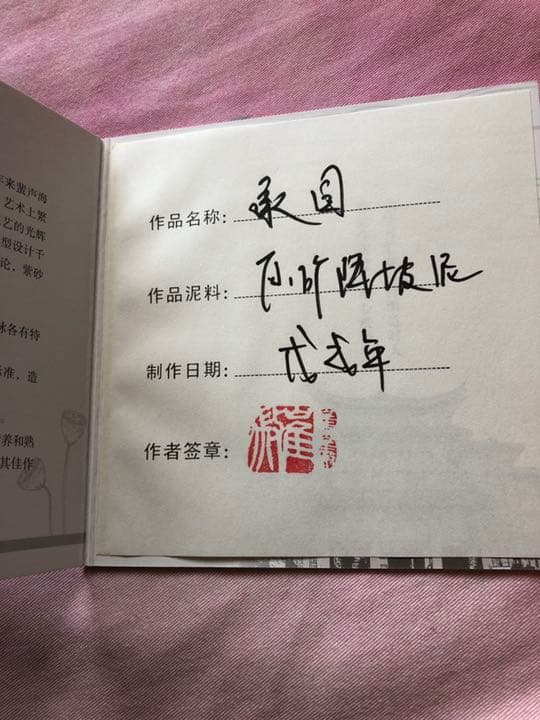 年来蜚声海
艺术上繁
艺的光辉
型设计千
论，紫砂
各有特
准，造
养和熟
其佳作
作品名称：
作品泥料：原矿降坡泥
制作日期：戊戌年
作者签章：